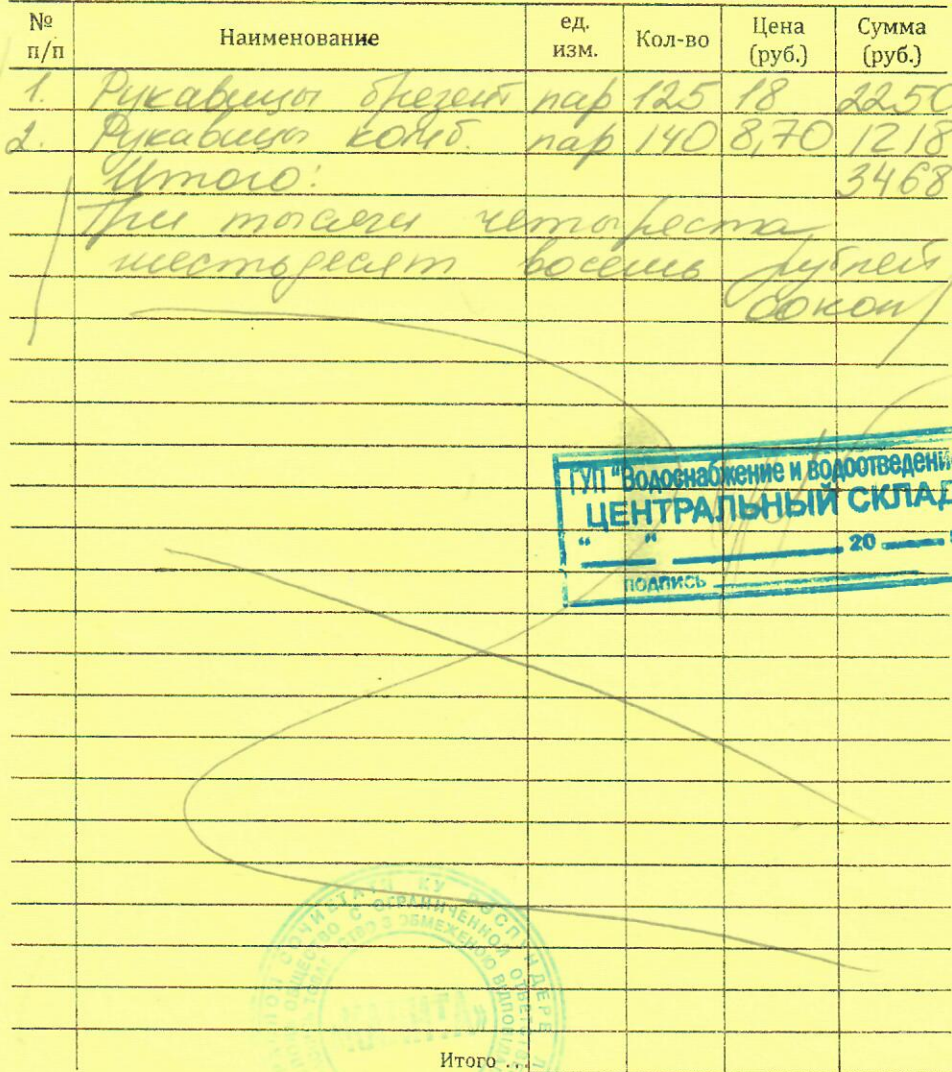 № п/п Наименование ед. изм. Кол-во Цена (руб.) Сумма (руб.)
1. Рукавицы брезент пар 125 18 2250
2. Рукавицы комб. пар 140 8,70 1218
Итого: 3468
Три тысячи четыреста
шестьдесят восемь рублей
00 коп
ГУП "Водоснабжение и водоотведени
ЦЕНТРАЛЬНЫЙ СКЛАД
" " 20
подпись
ОБЩЕСТВО С ОГРАНИЧЕННОЙ
З ОБМЕЖЕНОЮ
Итого ...